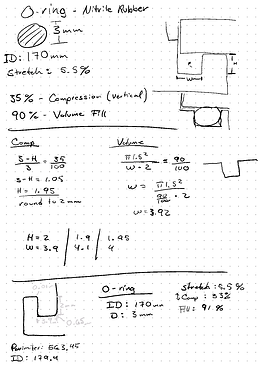 O-ring - Nitrile Rubber
3mm
ID: 170mm
Stretch: 5.5%
H
w
35% - Compression (vertical)
90% - Volume Fill
Comp
Volume
3-H / 3 = 35 / 100
π1.5² / w · 2 = 90 / 100
3-H = 1.05
H = 1.95
round to 2mm
w = π1.5² / 90/100 · 2
w = 3.92
H = 2 | 1.9 | 1.95
W = 3.9 | 4.1 | 4
O-ring
ID: 170mm
D: 3mm
Stretch: 5.5%
Comp: 33%
Fill: 91%
Perimiter: 563.45
ID: 179.4